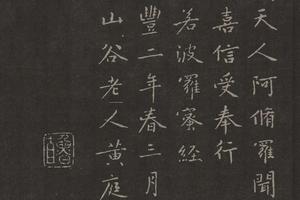 天人阿脩羅聞
嘉信受奉行
若波羅蜜經
豐二年春三月
山谷老人黃庭